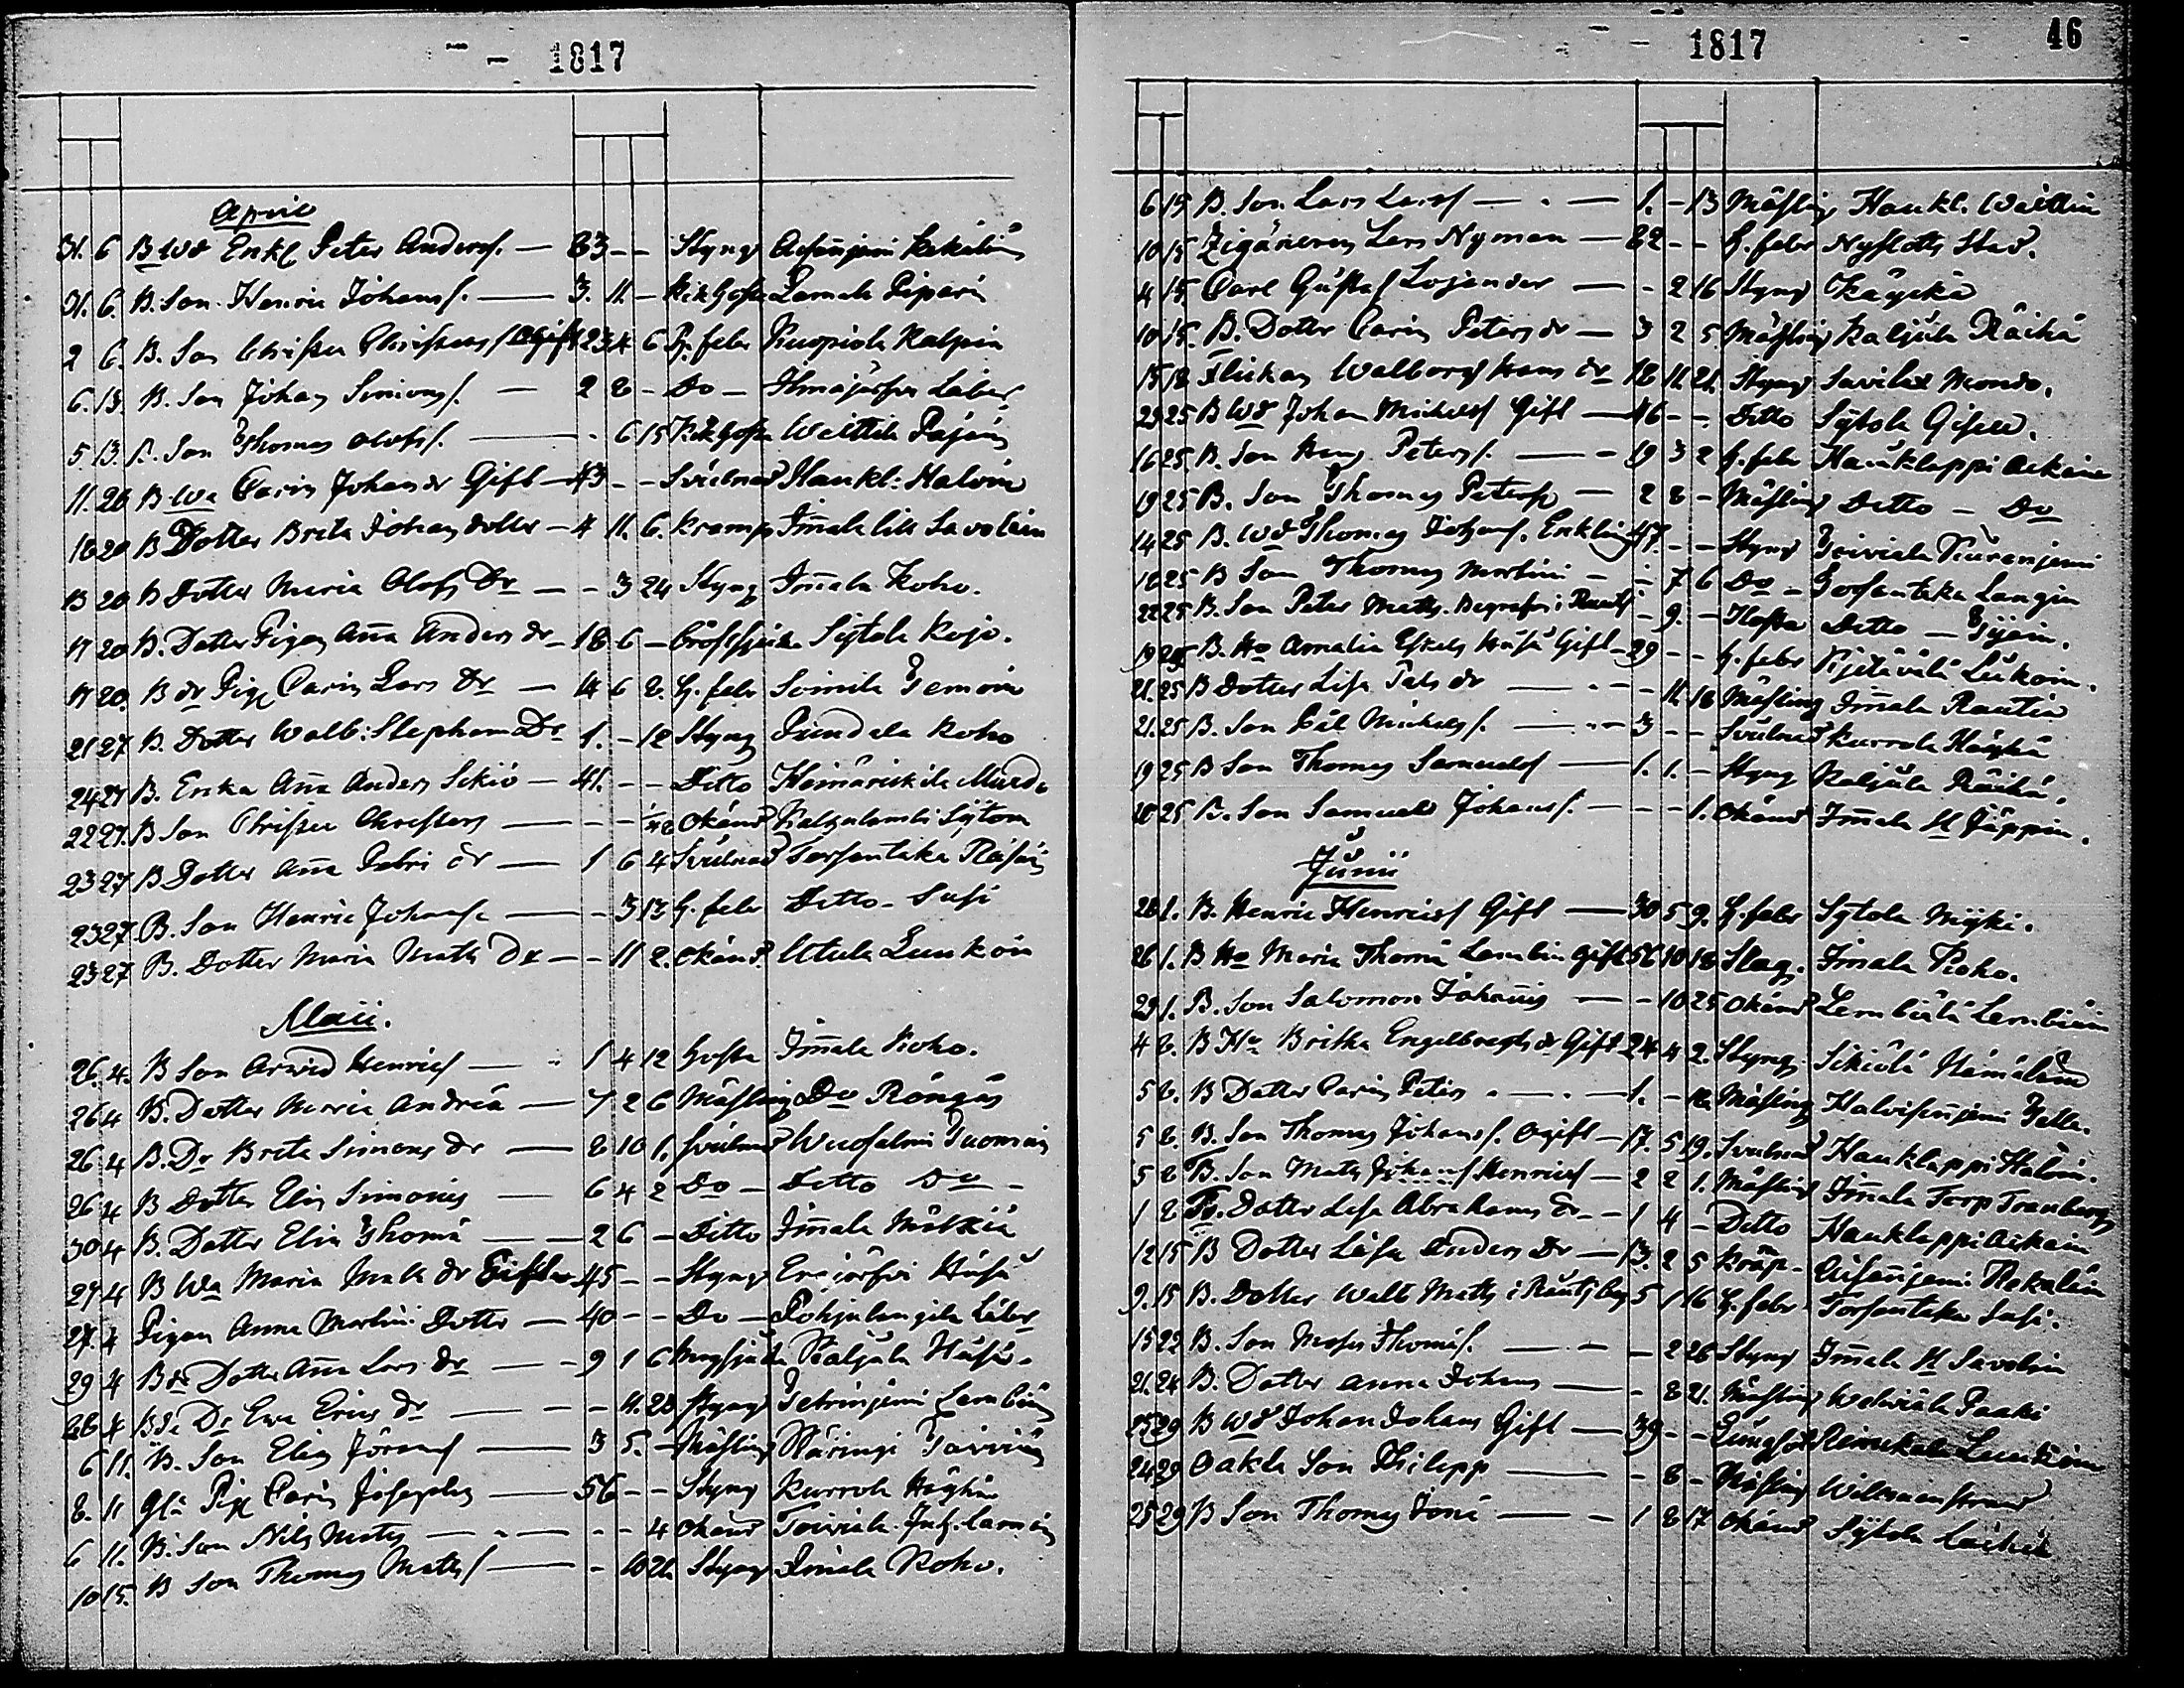 1817
April
31. 6 B Wd Enkl Peter Anders. — 83 - - Styng
31. 6. B. Son Henric Johans. — 3. 11. - Kikhosta Lamala Piparin
2 6. B. Son Christer Christers Ogift 23 4 6 H. feber Kuopiola Kalpin
6. 13. B. Son Johan Simons. — 2 8 - Do - Ilmajärfvi
5. 13. B. Son Thomas Olofs. — - 6 15 Kikhosta Weittila Pajain
11. 20 B Wa Carin Johans dr Gift — 43 - - Svulnad Haukl: Haloin
18 20 B Dotter Brita Johans dotter — 4 11. 6. Kramp Immala lilla Savolain
13 20 B Dotter Maria Olofs Dr — - 3 24 Styng Immala Koho.
17 20 B. Dotter Pigan Anna Anders dr — 18 6 - Bröstsjuka Sytola Kojo.
17 20. B dr Pig Carin Lars Dr — 14 6 8. H. febr Soinila Temoin
21 27 B. Dotter Walb: Stephans Dr 1. - 18 Styng Pundala Koho
24 27 B. Enka Anna Anders Sikiö — 41. - - Ditto
22 27. B Son Christer Christers — - - 1/12 Okänd Kaljulambi Sytom
23 27 B Dotter Anna Petri dr — 1 6 4 Svulnad Torsantaka Räisäin
23 27. B. Son Henric Johans — - 3 13 H. feber Ditto - Susi
23 27 B. Dotter Maria Matts Dr — - 11 2. Okänd Utula Luukoin
Maii.
26. 4. B Son Arvid Henrics — 1 4 12 Hosta Immala Koho.
26 4 B. Dotter Maria Andreä — 7 2 6 Mässling Do Röngäs
26 4 B. Dr Brita Simons dr — 8 10 1. Svulnad Wuosalmi Tuomain
26 4 B Dotter Elin Simonis — 6 4 2 Do - Ditto Do -
30 4 B. Dotter Elin Thomä — 2 6 - Ditto Immala Mälkiä
27 4 B Wa Maria Matts dr Gift — 45 - - Styng Erajärfvi Husu
27. 4 Pigan Anna Martini Dotter — 40 - - Do - Pohjalangila
29 4 B dr Dotter Anna Lars dr — - 9 1 6 Kaljula Husu.
28 4 B de Dr Ewa Erics dr — - 11. 23 Styng Tetrinjemi Lembiäin
6 11. B. Son Elias Jörans — 3 5. - Mässling Räringi Toiviain
8. 11 Gla Pig Carin Josephs — 56 - - Styng Kurrola Häyhä
6 11. B. Son Nils Matts — - - 4 Okänd Toiviala
10 15. B Son Thomas Matts — - 10 21. Styng Immala Koho.
1817 46
6 15 B. Son Lars Lars — 1. - 13 Mässling Haukl. Waittin
10 15 Zigänaren Lars Nyman — 82 - - H. feber Nyslotts Stad.
4 15 Carl Gustaf Lojander — - 2 16 Styng Käyckä
10 15. B. Dotter Carin Peters dr — 3 2 5. Mässling Kaljula Räihä
15 18 Flickan Walborg Hans dr 18 11. 21. Styng Savilax Mondo.
23 25 B Wd Johan Michels Gift — 46 - - Ditto Sytola
16 25. B. Son Hans Peters. — 19 3 2 H. febr Hauklappi Aickain
19 25 B. Son Thomas Peters — 2 8 - Mässling Ditto - Do
14 25 B. Wd Thomas Johans. Enkling 47. - - Styng Toiviala
18 25 B Son Thomas Martini — - 7 6 Do - Torsantaka Langin
22 25 B. Son Peter Matts. Begrafven i Rautj - 9. - Hosta Ditto —
19 25 B. Ho Amalia Eskels Husu Gift — 29 - - H. febr Pijtävälä Luikoin.
21. 25 B Dotter Lisa Påls dr — - 11. 18 Mässling Immala Rautio
21. 25 B. Son Påls Michels. — 3 - - Svulnad Kurrola Häyhä
19 25 B Son Thomas Samuels — 1. 1. - Styng Kaljula Räihä.
20 25 B. Son Samuel Johans. — - - 1. Okänd Immala
Junii
28 1. B. Henric Henrics Gift — 30 5 9. H. febr Sytola Myki.
26 1. B Ho Maria Thomä Lambin Gift 56 10 18 Slag. Immala Koho.
29 1. B. Son Salomon Johannis — - 10 25 Okänd Lembiälä Lembiäin
4 8. B Ho Britha Engelbregts dr Gift 24 4 2. Styng. Sikiölä Hämäläin
5 8. B Dotter Carin Peters — 1. - Mässling Halvisenjemi
5 8. B. Son Thomas Johans. Ogift — 17. 5 19. Svulnad Hauklappi Haloin.
5 8 B. Son Matts Johans Henrics — 2 2 1. Mässling Immala Torp Tranberg
1 8 B. Dotter Lisa Abrahams dr — 1 4 - Ditto Hauklappi Aickain
12 15 B Dotter Lisa Anders Dr — 13. 2 5 Kramp -
9. 15 B. Dotter Walb Matts i Rautj 5 1 16 H. febr Torsantaka Susi.
15 22 B. Son Moses Thomäs. — 2 26 Styng Immala Savolain
21. 24 B. Dotter Anna Johans — - 8 21. Mässling Paaki
25 29 B Wd Johan Johans Gift — 39 - - Lungsot Reinikala Luukäin
24 29 Oäkta Son Philipp — - 8 - Mässling Wilmanstrand
25 29 B Son Thomas Jonä — 1 8 17 Okänd Sytola